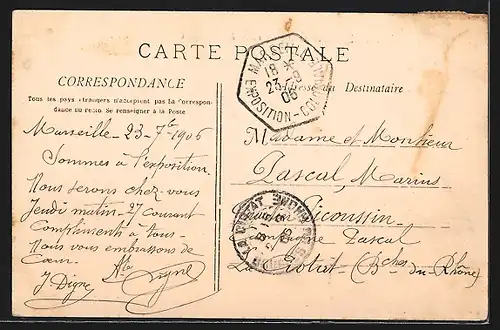 CARTE POSTALE
CORRESPONDANCE
Tous les pays étrangers n'acceptent pas la Correspon-
dance au recto. Se renseigner à la Poste
Adresse du Destinataire
MARSEILLE
18
23
06
EXPOSITION - COL
Marseille - 23 - 7bre 1906
Sommes à l'exposition
Nous serons chez vous
Jeudi matin - 27 courant
Compliments à tous -
Nous vous embrassons de
Cœur.
J Digne
Digne
Madame et Monsieur
Pascal, Marius
Campagne Pascal
La Ciotat (Bches du Rhône)
LA CIOTAT